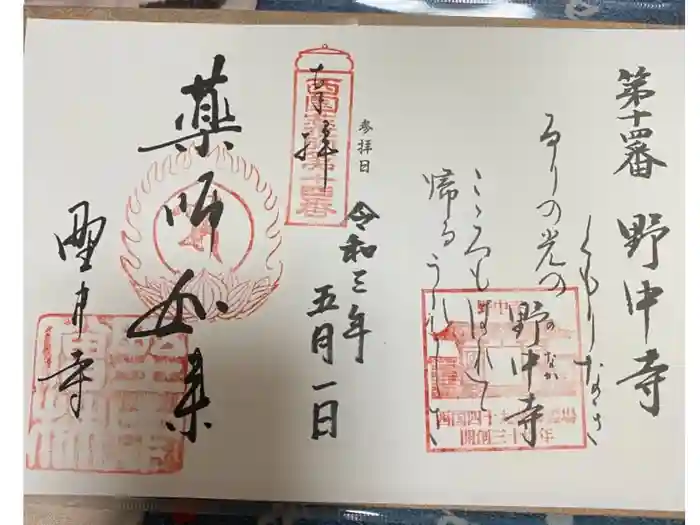 第十四番 野中寺
くもりなき
るりの光の 野中寺
のなか
こゝろもはれて
帰るうれしさ
参拝日
令和三年
五月一日
奉拝
西国薬師第十四番
薬師如来
野中寺
西国四十九
開創三十年